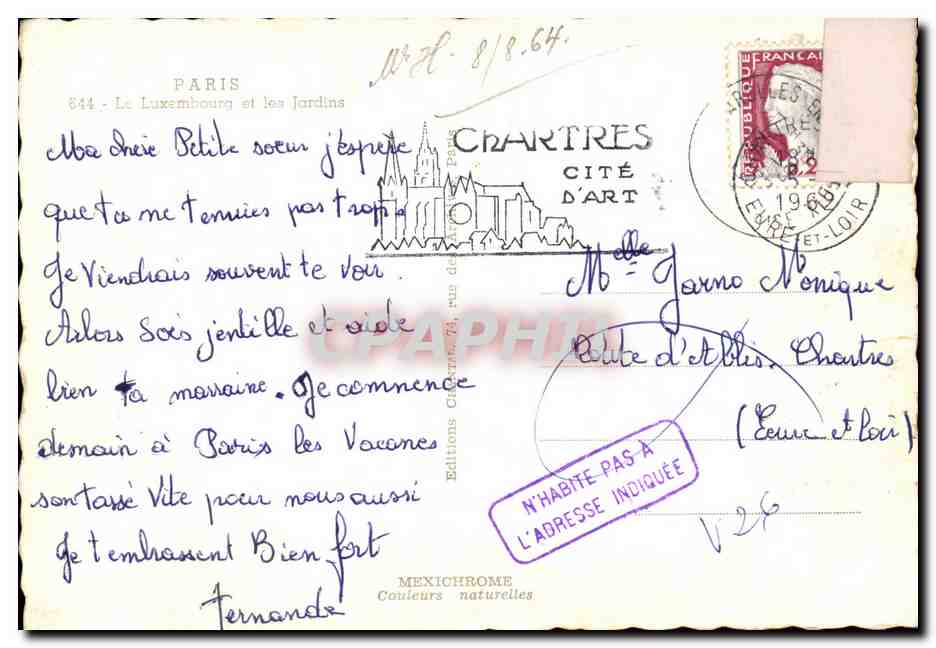 Mr H. 8/8.64.
PARIS
644 - Le Luxembourg et les Jardins
Ma chère Petite soeur j'espère
que tu ne t'enuies pas trop.
Je Viendrais souvent te voir.
Arlors Sois jentille et aide
bien ta marraine. Je commence
demain à Paris les Vacanes
sont assé Vite pour nous aussi
Je t'embrassent Bien fort
Fernande
CHARTRES
CITÉ
D'ART
REPUBLIQUE FRANÇAISE
196
EURE-ET-LOIR
Editions CHANTAL, 74, rue des Paris
Melle Garno Monique
Route d'Ablis. Chartres
(Eure et loir)
N'HABITE PAS À
L'ADRESSE INDIQUÉE
V 26
MEXICHROME
Couleurs naturelles
CPAPHIL